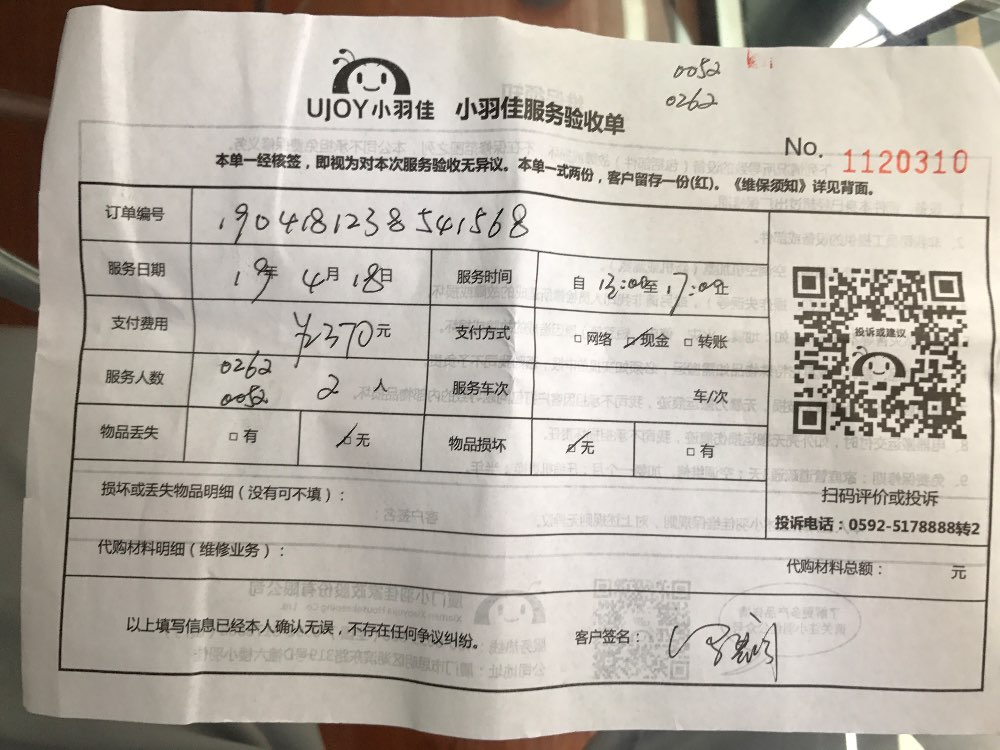 0052
0262
UJOY小羽佳 小羽佳服务验收单
No. 1120310
本单一经核签，即视为对本次服务验收无异议。本单一式两份，客户留存一份(红)。《维保须知》详见背面。
订单编号 190418123854 1568
服务日期 19年 4月 18日 服务时间 自 13:00至 17:00止
支付费用 ¥2370元 支付方式 □网络 ☑现金 □转账
服务人数 0262 0052 2 人 服务车次 车/次
物品丢失 □有 ☑无 物品损坏 ☑无 □有
投诉或建议
扫码评价或投诉
投诉电话：0592-5178888转2
损坏或丢失物品明细（没有可不填）：
代购材料明细（维修业务）： 代购材料总额： 元
以上填写信息已经本人确认无误，不存在任何争议纠纷。 客户签名：